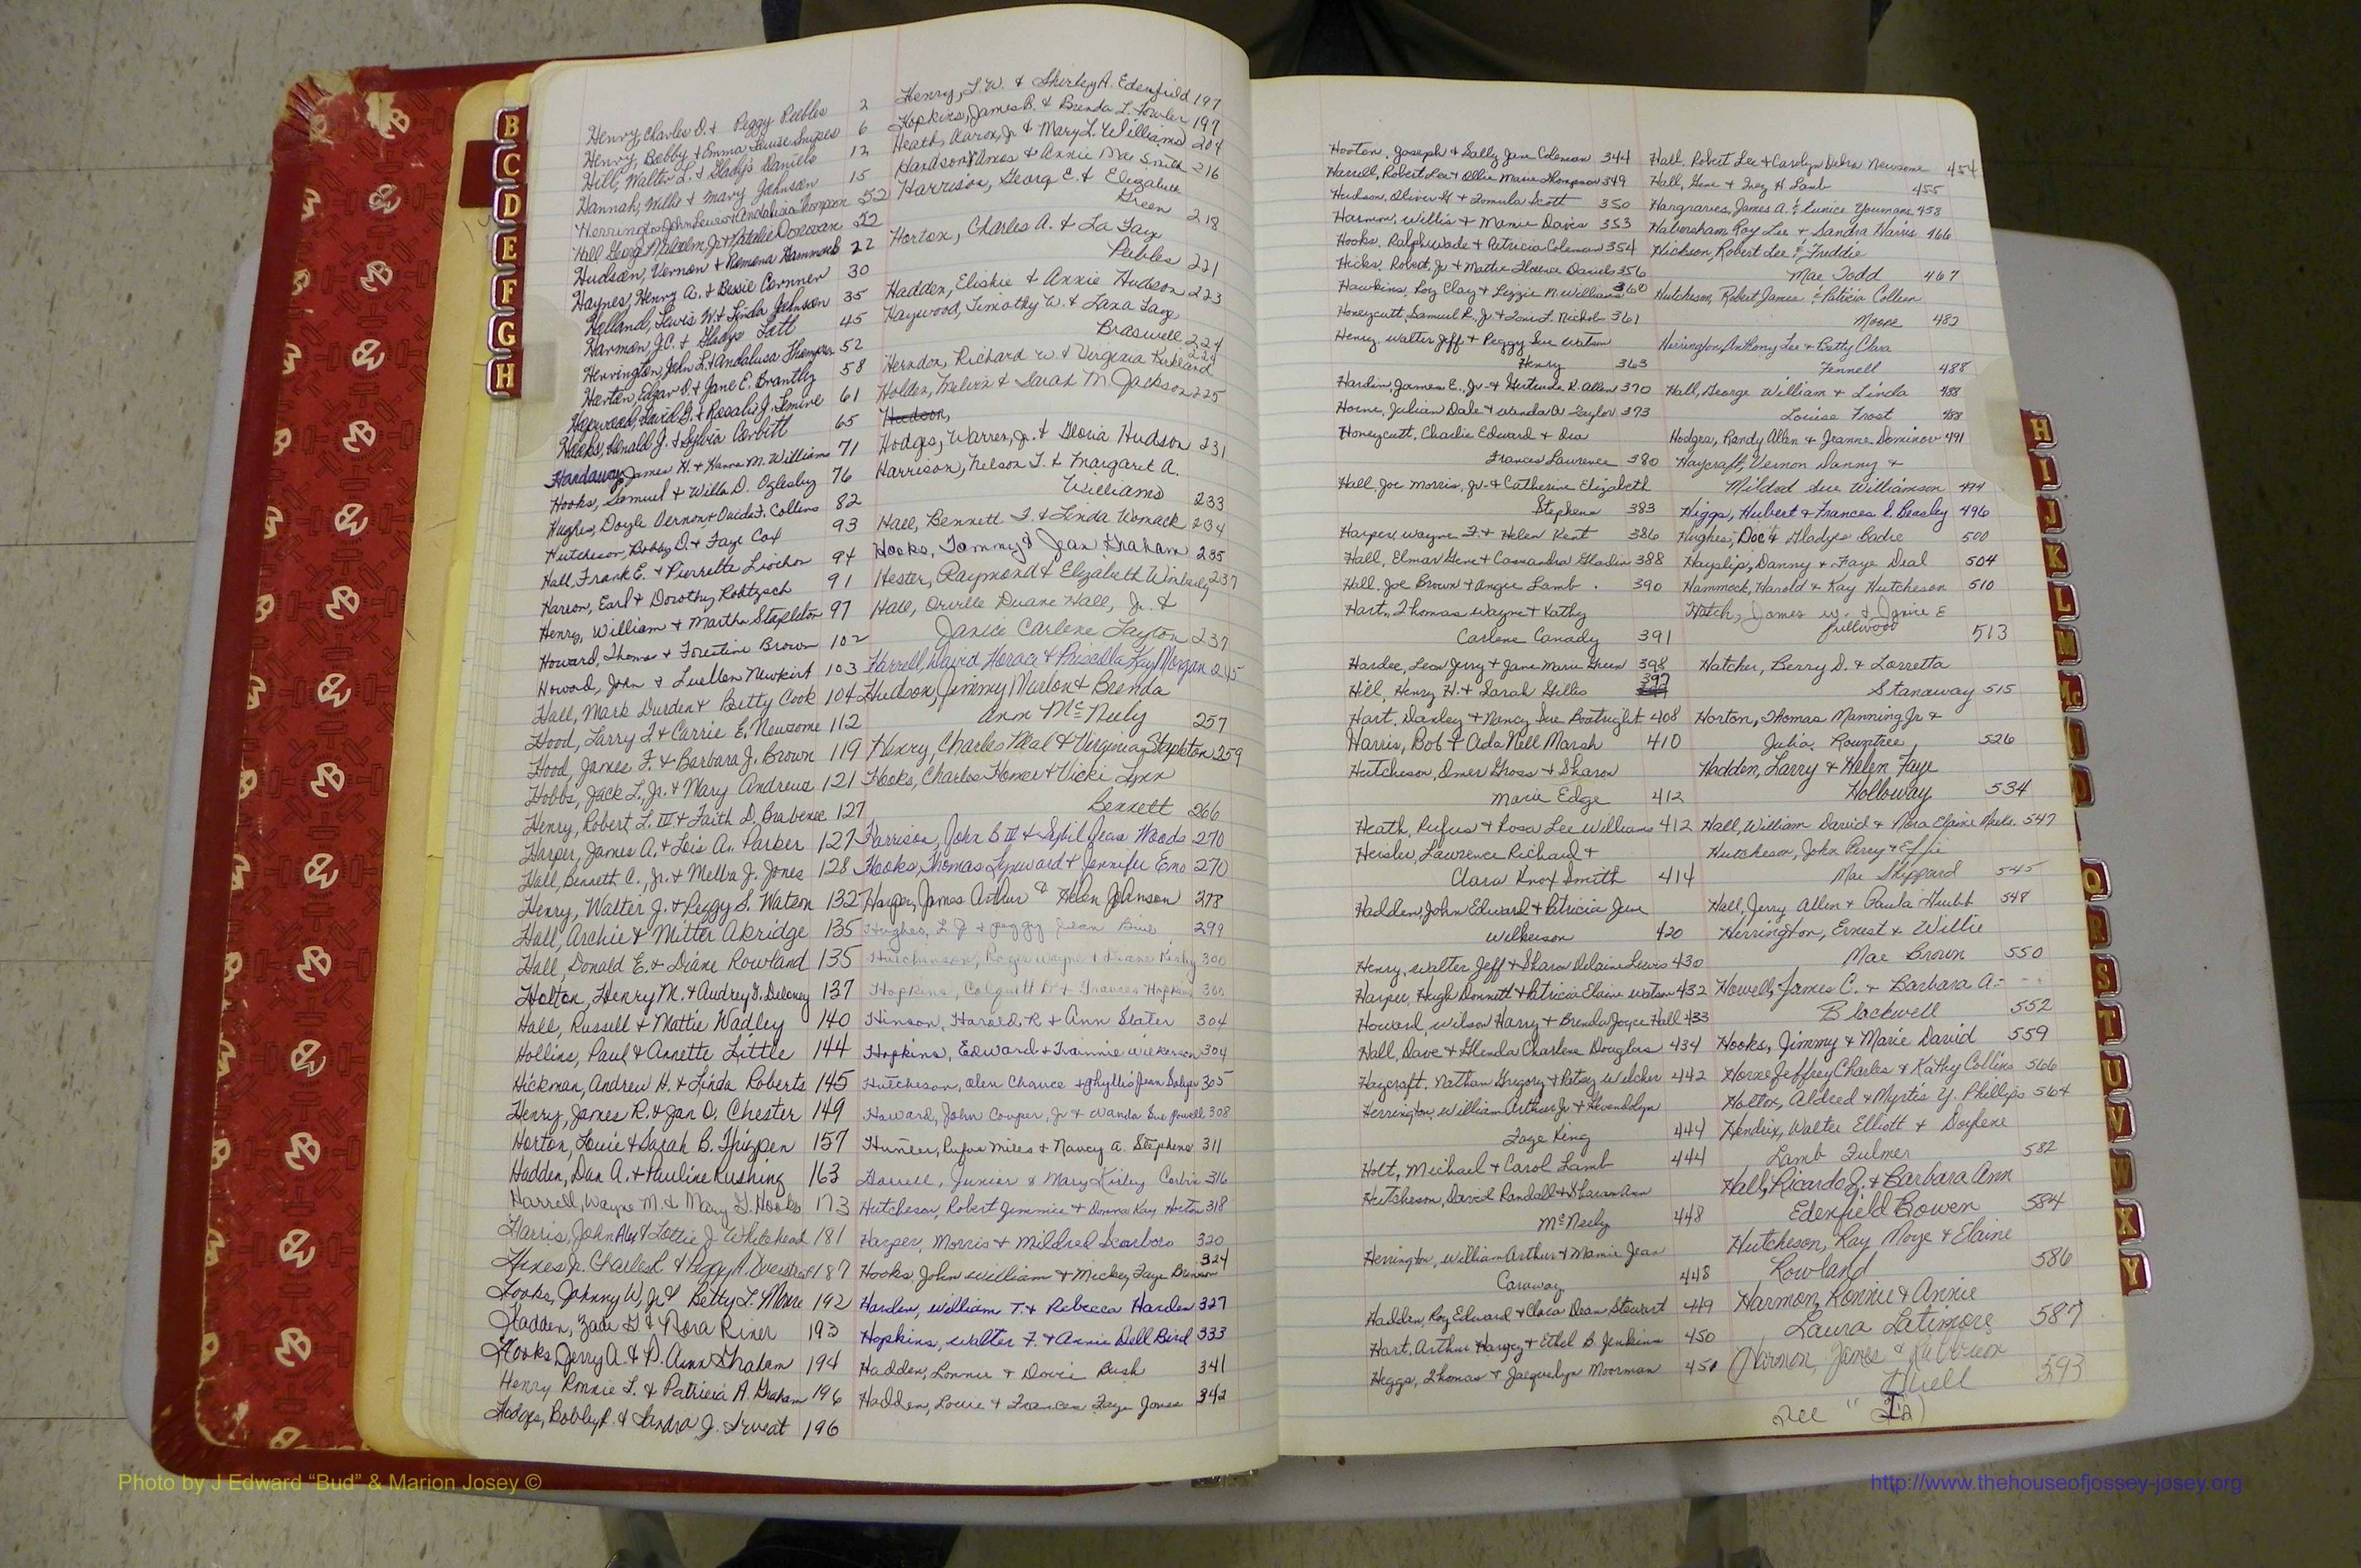 B
C
D
E
F
G
H
Henry, Charles D. & Peggy Peebles 2
Henry, Bobby & Emma Louise Snipes 6
Hill, Walter L. & Gladys Daniels 12
Hannah, Willie & Mary Johnson 15
Herrington, John Lewis & Andalusia Thompson 52
Hall, George Malcolm, Jr. & Natalie Donovan 22
Hudson, Vernon & Ramona Hammock 22
Haynes, Henry A. & Bessie 30
Holland, Lewis W. & Linda Johnson 35
Harmon, J.C. & Gladys 45
Herrington, John L. & Andalusa Thompson 52
Horton, Edgar O. & Jane E. Brantley 58
Haywood, David G. & Rosalie J. 61
Hooks, Donald J. & Sylvia Corbitt 65
Handaway, James H. & Hanna M. Williams 71
Hooks, Samuel & Willa D. Oglesby 76
Hughes, Doyle Vernon & Ouida F. Collins 82
Hutcheson, Bobby D. & Faye Cox 93
Hall, Frank E. & Pierrette 94
Harson, Earl & Dorothy 91
Henry, William & Martha Stapleton 97
Howard, Thomas & Forestine Brown 102
Howard, John & Luellen Newkirt 103
Hall, Mark Durden & Betty Cook 104
Hood, Larry F. & Carrie E. Newsome 112
Hood, James F. & Barbara J. Brown 119
Hobbs, Jack L., Jr. & Mary Andrews 121
Henry, Robert L. III & Faith D. Brabenec 127
Harper, James A. & Lois A. Parker 127
Hall, Bennett C., Jr. & Melba J. Jones 128
Henry, Walter J. & Peggy S. Watson 132
Hall, Archie & Mittie Akridge 135
Hall, Donald E. & Diane Rowland 135
Holton, Henry M. & Audrey J. Deloney 137
Hall, Russell & Mattie Wadley 140
Hollins, Paul & Annette Little 144
Hickman, Andrew H. & Linda Roberts 145
Henry, James R. & Jan O. Chester 149
Horton, Louie & Sarah B. Thigpen 157
Hadden, Dan A. & Pauline Rushing 163
Harrell, Wayne M. & Mary G. Hooks 173
Harris, John Alex & Lottie J. Whitehead 181
Hines Jr. Charles C. & Peggy A. Overstreet 187
Hooks, Johnny W., Jr. & Betty L. Moore 192
Hadden, Zade G. & Nora Riner 193
Hooks, Jerry A. & P. Ann Graham 194
Henry Ronnie L. & Patricia A. Graham 196
Hodges, Bobby R. & Sandra J. Sweat 196
Henry, L.W. & Shirley A. Edenfield 197
Hopkins, James B. & Brenda L. Fowler 197
Heath, Aaron, Jr. & Mary L. Williams 204
Hardson, Amos & Annie Mae Smith 216
Harrison, Georg E. & Elizabeth
Green 218
Horton, Charles A. & La Faye
Peebles 221
Hadden, Elishie & Annie Hudson 223
Haywood, Timothy W. & Lana Faye
Braswell 224
Herndon, Richard W. & Virginia Kirkland 224
Holder, Melvin & Sarah M. Jackson 225
Hudson,
Hodges, Warren, Jr. & Gloria Hudson 231
Harrison, Nelson T. & Margaret A.
Williams 233
Hall, Bennett F. & Linda Womack 234
Hooks, Tommy & Jean Graham 235
Hester, Raymond & Elizabeth Wimberly 237
Hall, Orville Duane Hall, Jr. &
Janice Carlene Layton 237
Harrell, David Horace & Priscilla Kay Morgan 245
Hudson, Jimmy Marlon & Brenda
Ann McNeely 257
Henry, Charles Neal & Virginia Stapleton 259
Hooks, Charles Homer & Vicki Lynn
Bennett 266
Harrison, John B III & Sybil Jean Woods 270
Hooks, Thomas Lynward & Jennifer Emo 270
Harper, James Arthur & Helen Johnson 278
Hughes, L.J. & Peggy Jean 299
Hutchinson, Roger Wayne & Diane Kirby 300
Hopkins, Colquitt & Frances Hopkins 300
Hinson, Harold R. & Ann Slater 304
Hopkins, Edward & Frannie Wilkerson 304
Hutcheson, Olen Chance & Phyllis Jean 305
Howard, John Couper, Jr & Wanda Sue Powell 308
Hunter, Rufus Miles & Nancy A. Stephens 311
Harrell, Junior & Mary Kirley Corbin 316
Hutcheson, Robert Jimmie & Donna Kay Horton 318
Harper, Morris & Mildred Scarboro 320
Hooks, John William & Mickey Faye Brinson 324
Harden, William T. & Rebecca Harden 327
Hopkins, Walter F. & Annie Dell Bird 333
Hadden, Lonnie & Dovie Bush 341
Hadden, Louie & Frances Faye Jones 342
Hooton, Joseph & Sally Jane Coleman 344
Harrell, Robert Lee & Ollie Marie Thompson 349
Hudson, Oliver H. & Romula Scott 350
Harmon, Willis & Mamie Davis 353
Hooks, Ralph Wade & Patricia Coleman 354
Hicks, Robert, Jr & Mattie Florence Daniels 356
Hawkins, Roy Clay & Lizzie N. Williams 360
Honeycutt, Samuel R., Jr. & Toni L. Nichols 361
Henry, Walter Jeff & Peggy Sue Watson
Henry 363
Hardin, James E., Jr. & Gertrude K. Allen 370
Horne, Julian Dale & Wanda A. Taylor 373
Honeycutt, Charlie Edward & Dra
Frances Lawrence 380
Hall, Joe Morris, Jr. & Catherine Elizabeth
Stephens 383
Harper, Wayne F. & Helen Kent 386
Hall, Elmar Gene & Cassandra Gladin 388
Hall, Joe Brown & Angie Lamb 390
Hart, Thomas Wayne & Kathy
Carlene Canady 391
Hardee, Leon Jerry & Jane Marie Green 398
Hill, Henry H. & Sarah Gillis 397
Hart, Danley & Nancy Sue Boatright 408
Harris, Bob & Ada Nell Marsh 410
Hutcheson, Omer Gross & Sharon
Marie Edge 412
Heath, Rufus & Rosa Lee Williams 412
Hersler, Lawrence Richard &
Clara Knox Smith 414
Hadden, John Edward & Patricia June
Wilkerson 420
Henry, Walter Jeff & Sharon Delaine Lewis 430
Harper, Hugh Donnett & Patricia Elaine Watson 432
Howard, Wilson Harry & Brenda Joyce Hall 433
Hall, Dave & Glenda Charlene Douglas 434
Haycraft, Nathan Gregory & Patsy Welcher 442
Herrington, William Arthur Jr. & Gwendolyn
Faye King 444
Holt, Michael & Carol Lamb 444
Hutcheson, David Randall & Sharon Ann
McNeely 448
Herrington, William Arthur & Mamie Jean
Caraway 448
Hadden, Roy Edward & Clara Dean Stewart 449
Hart, Arthur Harvey & Ethel B. Jenkins 450
Heggs, Thomas & Jacquelyn Moorman 451
Hall, Robert Lee & Carolyn Debra Newsome 454
Hall, Gene & Inez H Lamb 455
Hargraves, James A. & Eunice Youmans 458
Habersham, Roy Lee & Sandra Harris 466
Hickson, Robert Lee & Freddie
Mae Todd 467
Hutcheson, Robert James & Patricia Colleen
Moore 482
Herrington, Anthony Lee & Betty Clara
Fennell 488
Hall, George William & Linda 488
Louise Frost 488
Hodges, Randy Allen & Jeanne Dominov 491
Haycraft, Vernon Danny &
Mildred Sue Williamson 494
Higgs, Hubert & Frances P. Beasley 496
Hughes, Doc & Gladys Cadre 500
Hayslip, Danny & Faye Deal 504
Hammock, Harold & Kay Hutcheson 510
Hatch, James W. & Janice E
Fullwood 513
Hatcher, Berry D. & Lorretta
Stanaway 515
Horton, Thomas Manning Jr &
Julia Rountree 526
Hadden, Larry & Helen Faye
Holloway 534
Hall, William David & Nora Elaine 547
Hutcheson, John Perry & Effie
Mae Sheppard 545
Hall, Jerry Allen & Paula Hubb 548
Herrington, Ernest & Willie
Mae Brown 550
Howell, James C. & Barbara A.
Blackwell 552
Hooks, Jimmy & Marie David 559
Horne Jeffrey Charles & Kathy Collins 566
Holton, Aldred & Myrtis Y. Phillips 564
Hendrix, Walter Elliott & Doylene
Lamb Fulmer 582
Hall, Ricardo J. & Barbara Ann
Edenfield Bowen 584
Hutcheson, Ray Moye & Elaine
Rowland 586
Harmon, Ronnie & Annie
Laura Latimore 587
Harmon, James &
Buell 593
See "
H
I
J
K
L
M
Mc
N
O
Q
R
S
T
U
V
W
X
Y
Photo by J Edward “Bud” & Marion Josey ©
http://www.thehouseofjossey-josey.org